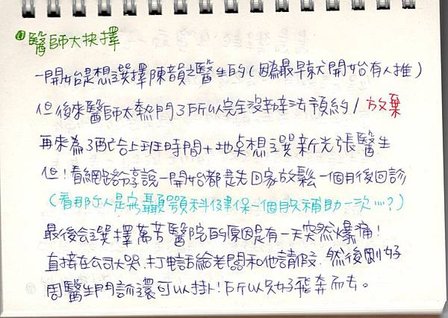 醫師大抉擇
一開始是想選擇陳韻之醫生的(因為最早聊天開始有人推)
但後來醫師太熱門了所以完全沒辦法預約/放棄
再來為了配合上班時間+地點想選新光張醫生
但!看網路分享說一開始都是先回家放鬆一個月後回診
(看那好像是病顳顎科健保一個月補助一次…?)
最後會選擇萬芳醫院的原因是有一天突然爆痛!
直接在公司大哭.打電話給老闆和他請假.然後剛好
周醫生門診還可以掛!所以就飛奔而去。